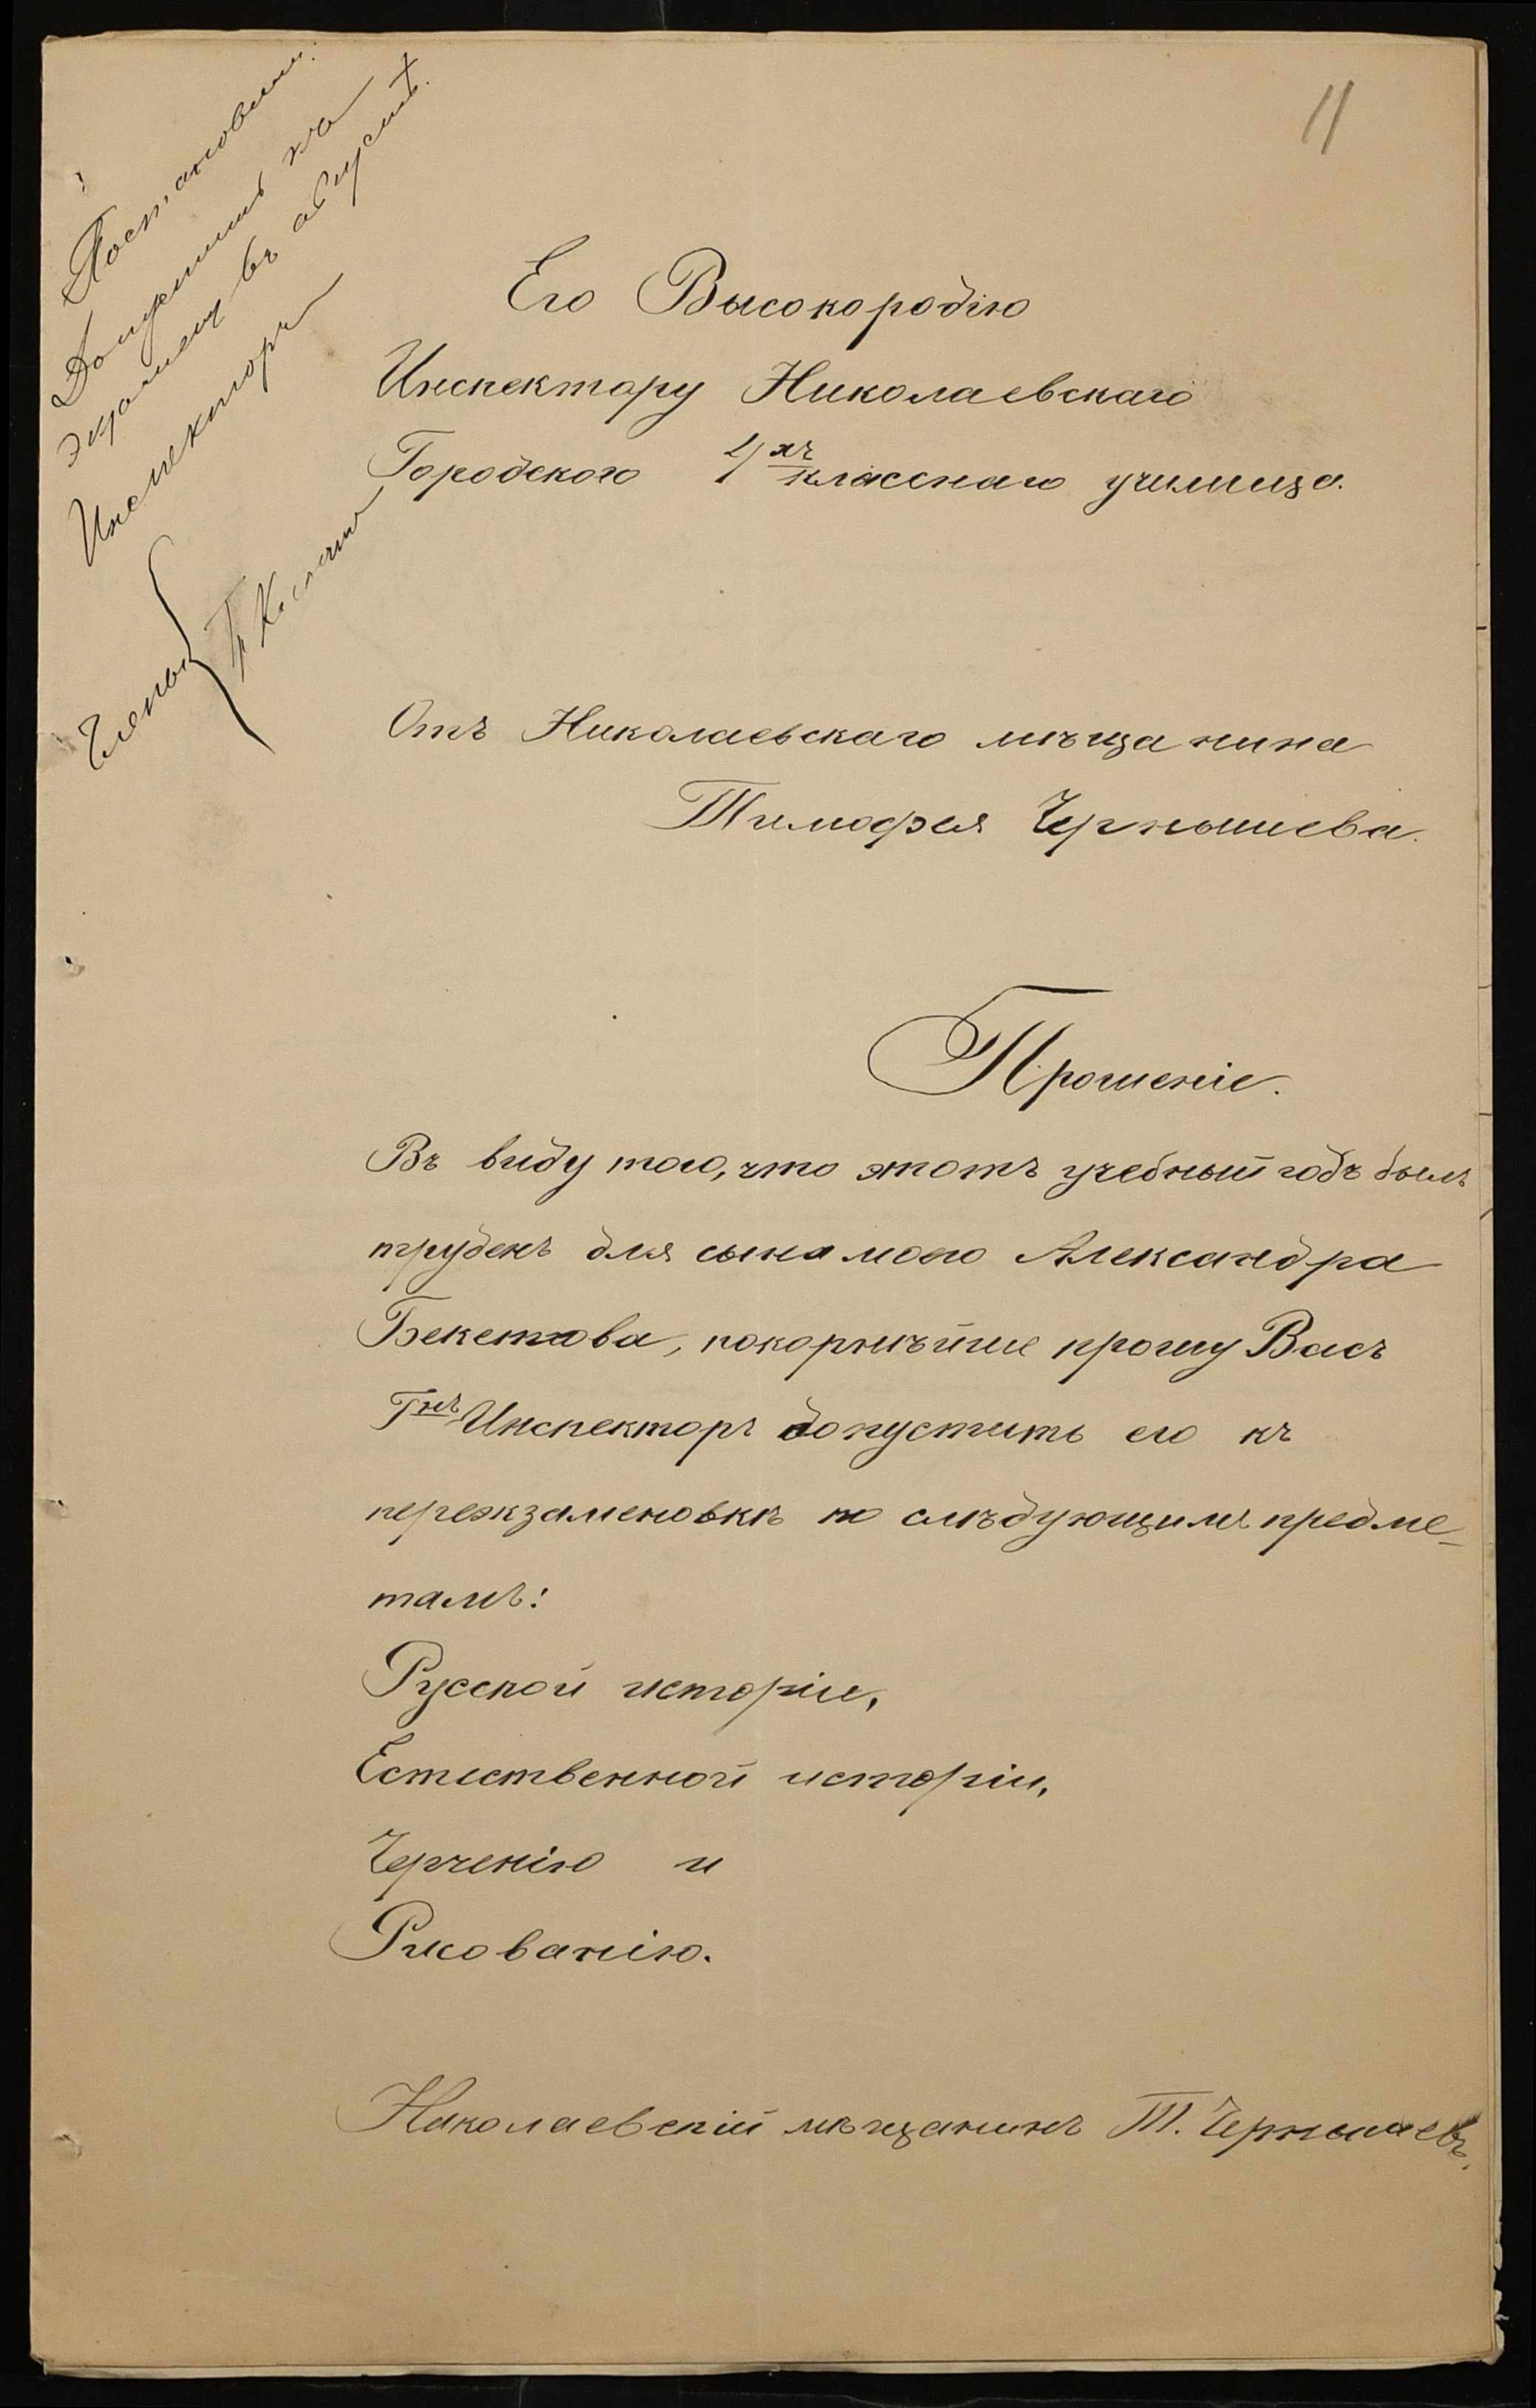 11
Постановили:
Допустить на
экзамену въ августѣ.
Инспекторъ
Члены
Его Высокородію
Инспектору Николаевскаго
Городского 4хъ классная училища.
Отъ Николаевскаго мѣщанина
Тимофея Чернышева.
Прошеніе.
Въ виду того, что этотъ учебный годъ былъ
труденъ для сына моего Александра
Бекетова, покорнѣйше прошу Васъ
Гнъ Инспекторъ допустить его къ
переэкзаменовкѣ по слѣдующимъ предме-
тамъ:
Русской исторіи,
Естественной исторіи,
Черченію и
Рисованію.
Николаевскій мѣщанинъ Т. Чернышевъ.